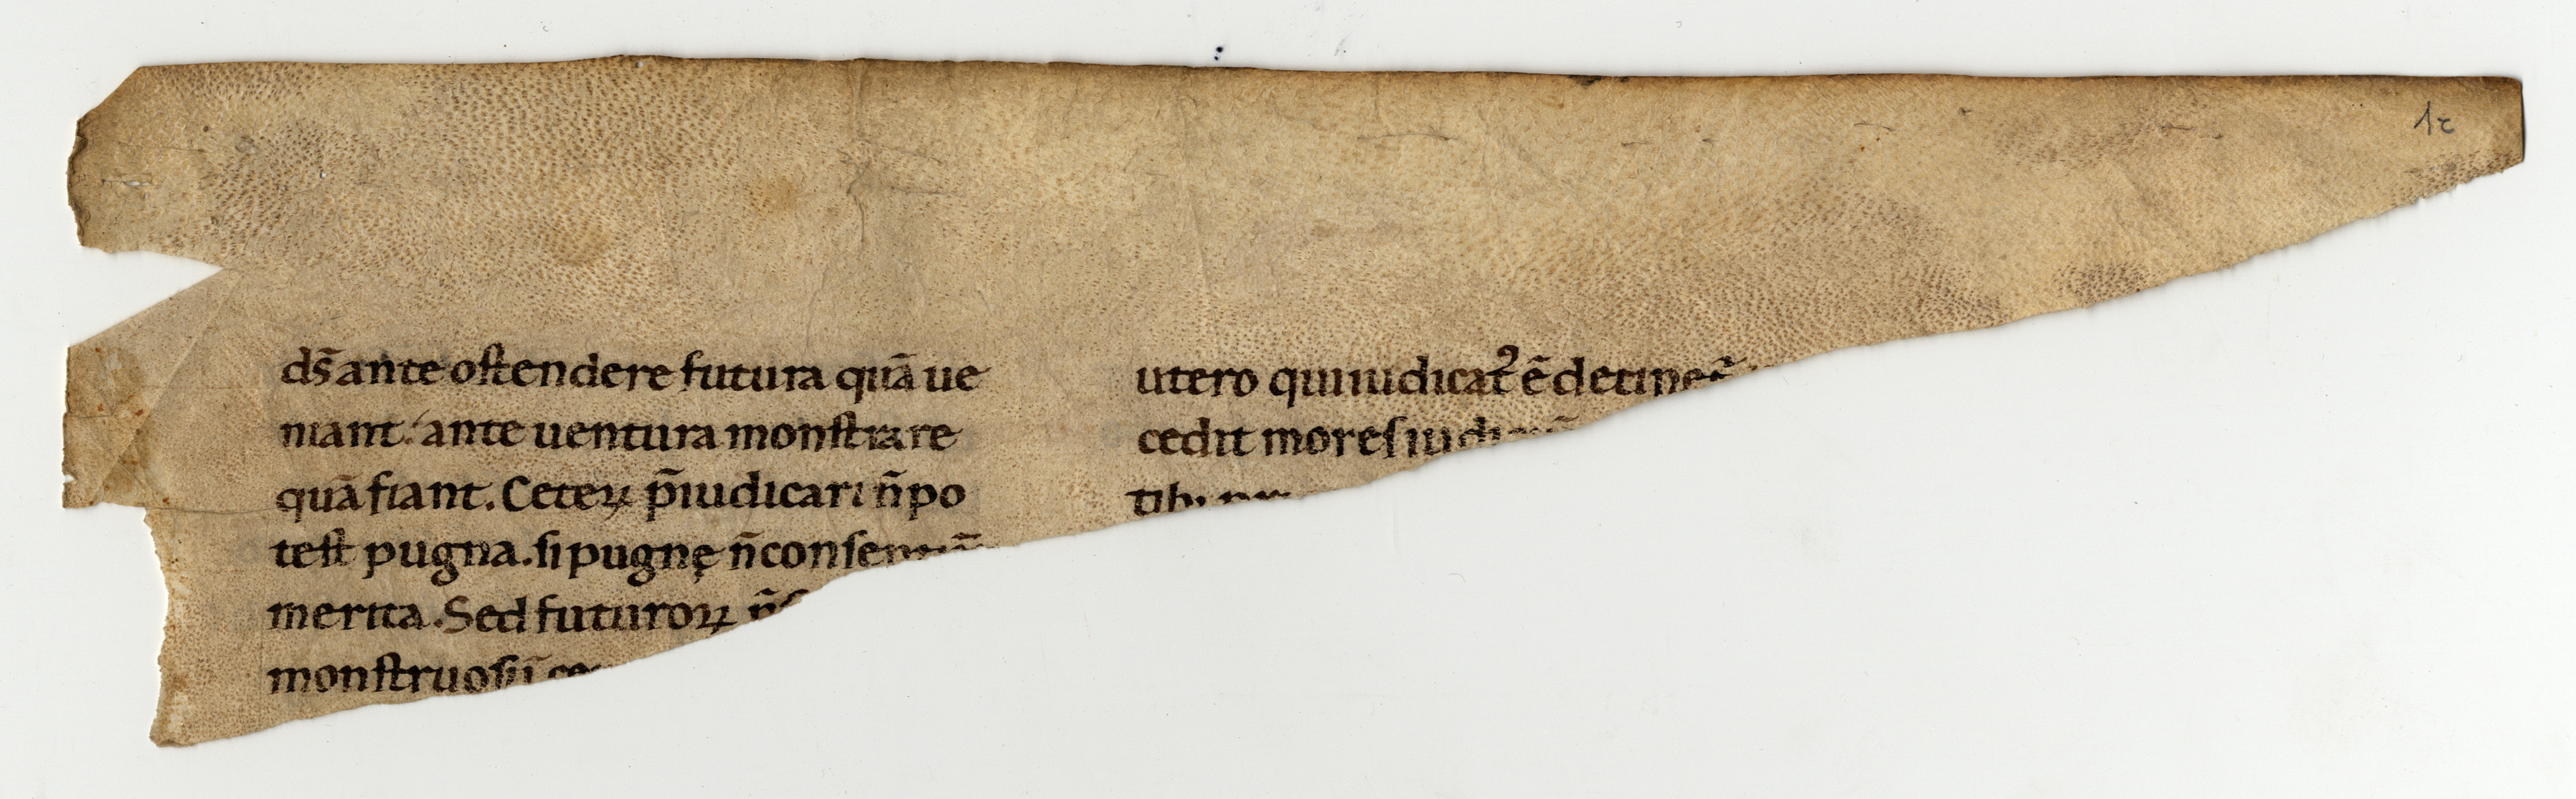 1c
ds̄ ante ostendere futura quā ue
niant. ante uentura monstrare
quā fiant. Ceteꝝ p̄iudicari n̄ po
test pugna. si pugnę n̄
merita. Sed futuroꝝ
monstruosū
utero qui iudicatꝰ ē
cedit mores